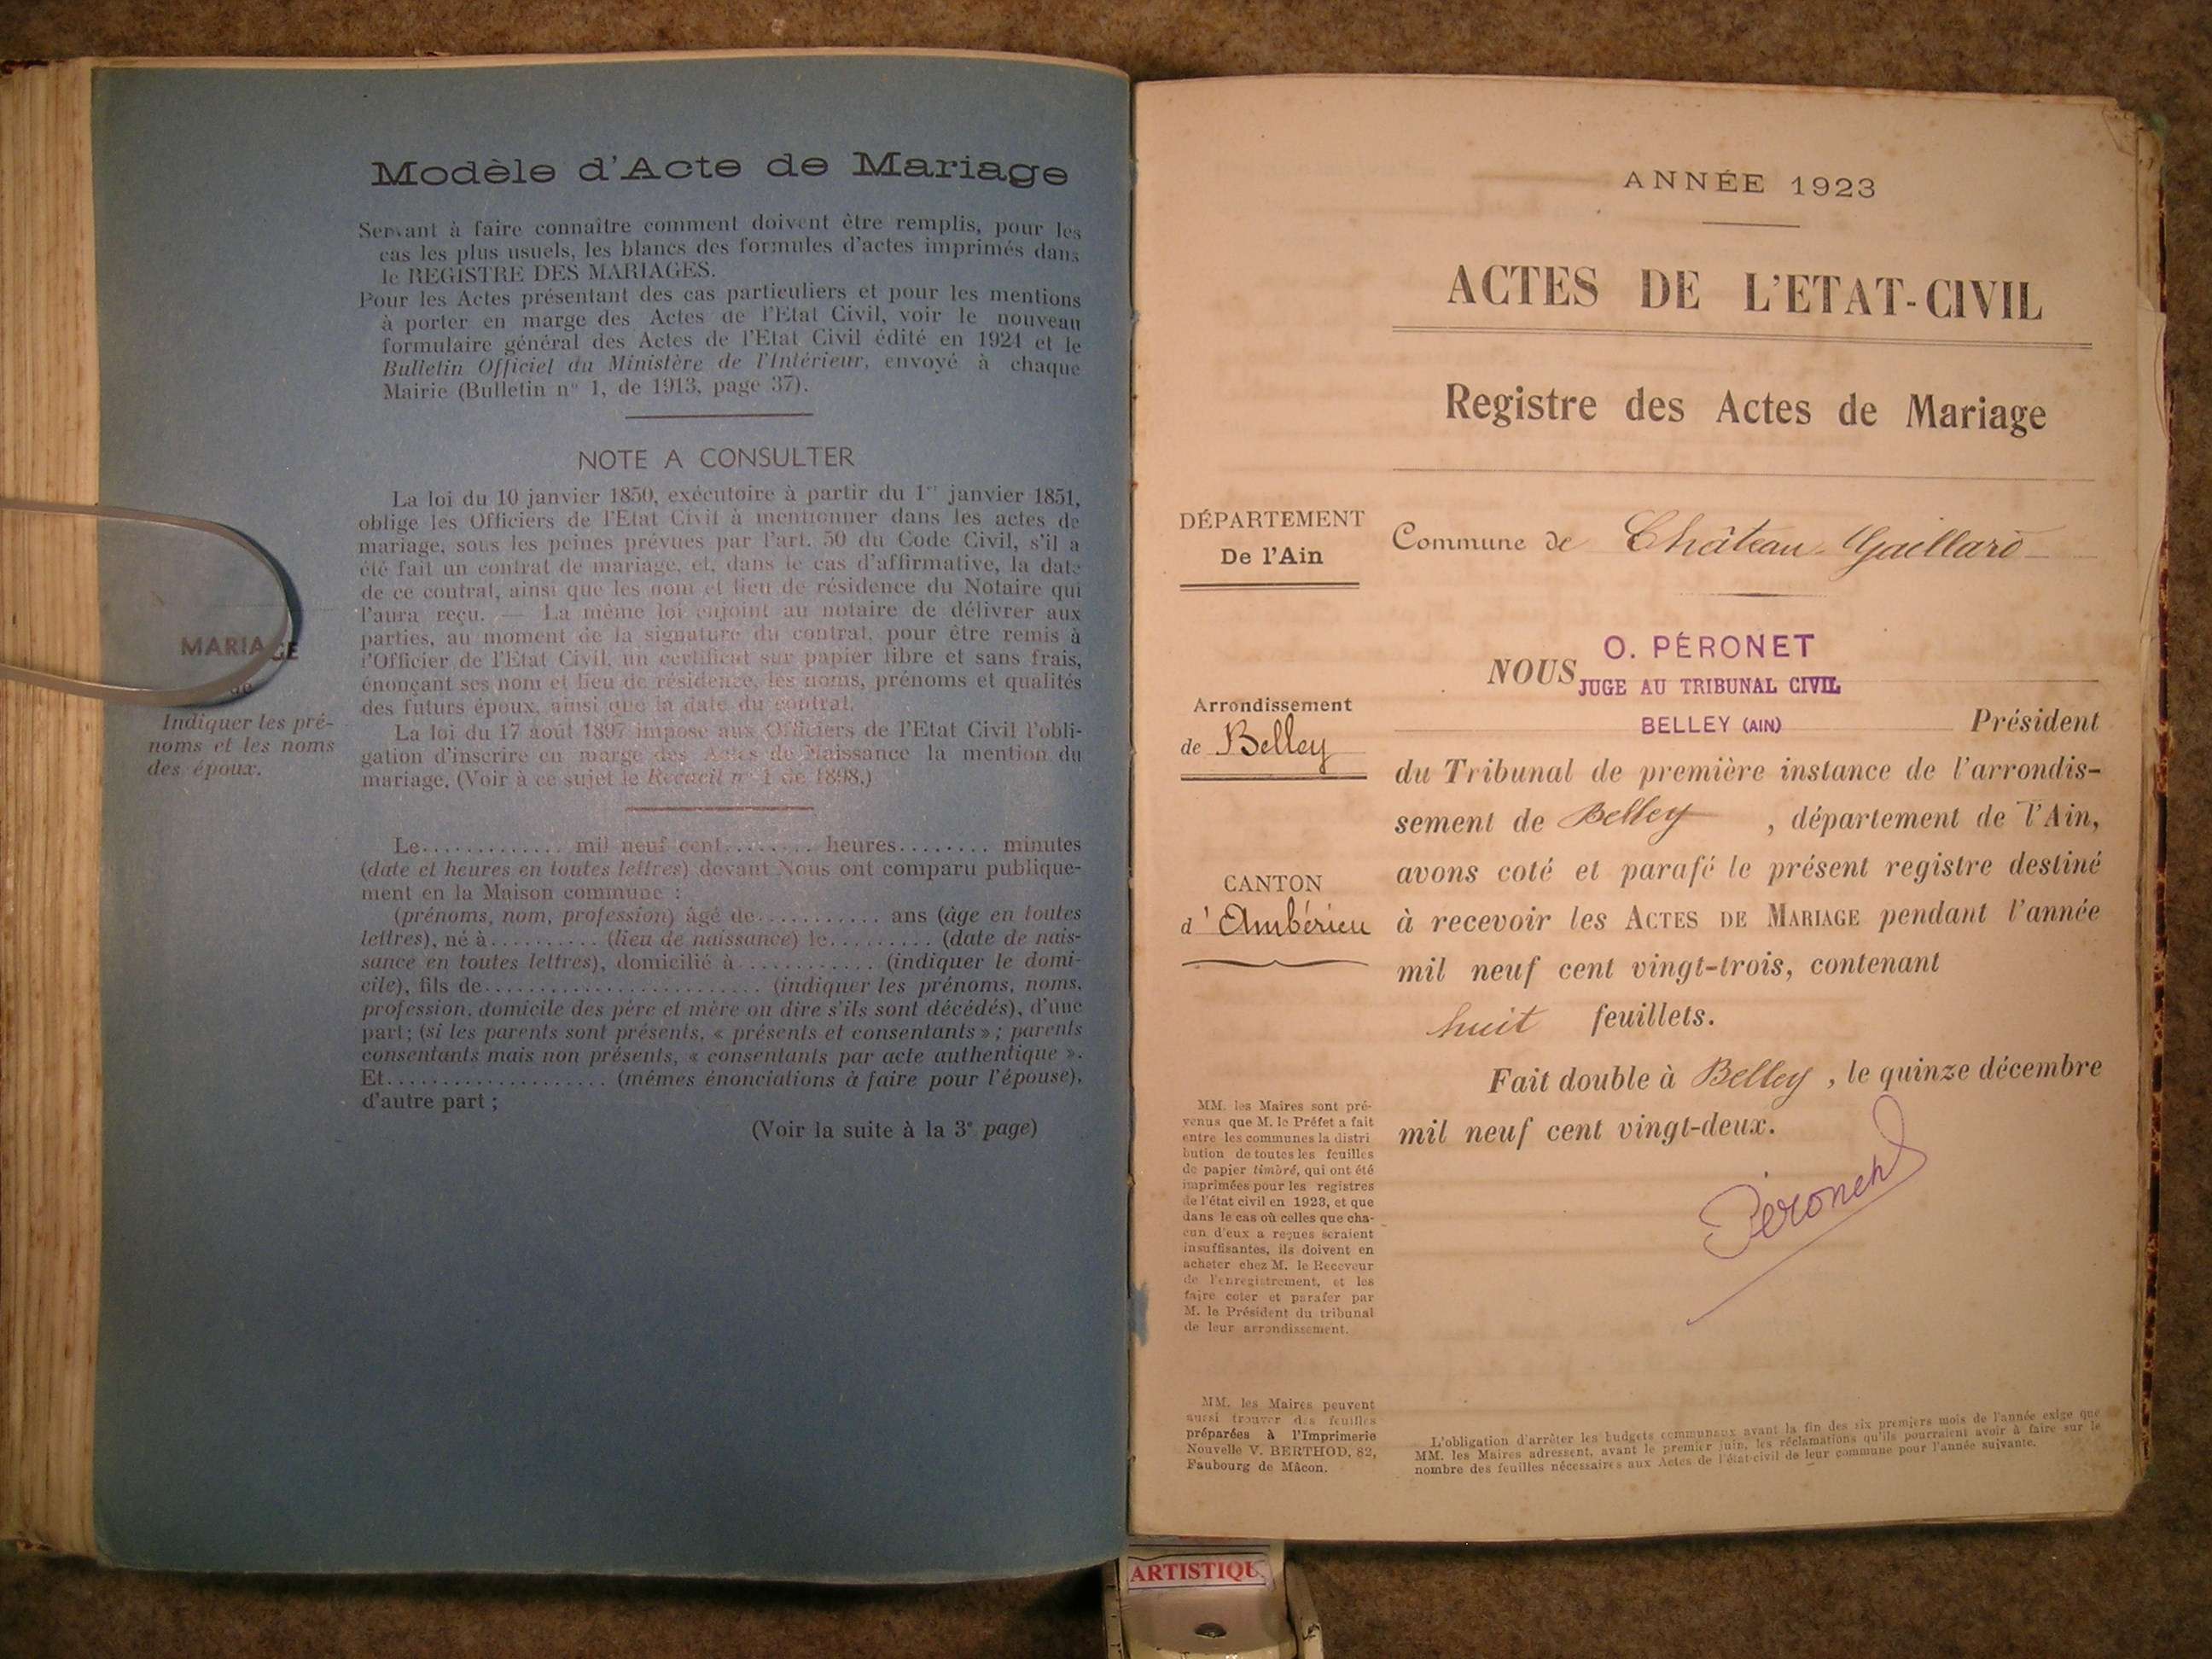 Modèle d'Acte de Mariage
Servant à faire connaître comment doivent être remplis, pour les
cas les plus usuels, les blancs des formules d'actes imprimés dans
le REGISTRE DES MARIAGES.
Pour les Actes présentant des cas particuliers et pour les mentions
à porter en marge des Actes de l'Etat Civil, voir le nouveau
formulaire général des Actes de l'Etat Civil édité en 1921 et le
Bulletin Officiel du Ministère de l'Intérieur, envoyé à chaque
Mairie (Bulletin n° 1, de 1913, page 37).
NOTE A CONSULTER
La loi du 10 janvier 1850, exécutoire à partir du 1er janvier 1851,
oblige les Officiers de l'Etat Civil à mentionner dans les actes de
mariage, sous les peines prévues par l'art. 50 du Code Civil, s'il a
été fait un contrat de mariage, et, dans le cas d'affirmative, la date
de ce contrat, ainsi que les nom et lieu de résidence du Notaire qui
l'aura reçu. — La même loi enjoint au notaire de délivrer aux
parties, au moment de la signature du contrat, pour être remis à
l'Officier de l'Etat Civil, un certificat sur papier libre et sans frais,
énonçant ses nom et lieu de résidence, les noms, prénoms et qualités
des futurs époux, ainsi que la date du contrat.
La loi du 17 août 1897 impose aux Officiers de l'Etat Civil l'obli-
gation d'inscrire en marge des Actes de Naissance la mention du
mariage. (Voir à ce sujet le Recueil n° 1 de 1898.)
MARIAGE
de
Indiquer les pré-
noms et les noms
des époux.
Le............ mil neuf cent........ heures........ minutes
(date et heures en toutes lettres) devant Nous ont comparu publique-
ment en la Maison commune :
(prénoms, nom, profession) âgé de........... ans (âge en toutes
lettres), né à.......... (lieu de naissance) le......... (date de nais-
sance en toutes lettres), domicilié à............ (indiquer le domi-
cile), fils de........................ (indiquer les prénoms, noms,
profession, domicile des père et mère ou dire s'ils sont décédés), d'une
part; (si les parents sont présents, « présents et consentants » ; parents
consentants mais non présents, « consentants par acte authentique ».
Et................... (mêmes énonciations à faire pour l'épouse),
d'autre part ;
(Voir la suite à la 3e page)
ANNÉE 1923
ACTES DE L'ETAT-CIVIL
Registre des Actes de Mariage
DÉPARTEMENT
De l'Ain
Commune de Château-Gaillard
Arrondissement
de Belley
CANTON
d'Ambérieu
NOUS O. PÉRONET
JUGE AU TRIBUNAL CIVIL
BELLEY (AIN) Président
du Tribunal de première instance de l'arrondis-
sement de Belley , département de l'Ain,
avons coté et parafé le présent registre destiné
à recevoir les ACTES DE MARIAGE pendant l'année
mil neuf cent vingt-trois, contenant
huit feuillets.
Fait double à Belley, le quinze décembre
mil neuf cent vingt-deux.
Péronet
MM. les Maires sont pré-
venus que M. le Préfet a fait
entre les communes la distri
bution de toutes les feuilles
de papier timbré, qui ont été
imprimées pour les registres
de l'état civil en 1923, et que
dans le cas où celles que cha-
cun d'eux a reçues seraient
insuffisantes, ils doivent en
acheter chez M. le Receveur
de l'enregistrement, et les
faire coter et parafer par
M. le Président du tribunal
de leur arrondissement.
MM. les Maires peuvent
aussi trouver des feuilles
préparées à l'Imprimerie
Nouvelle V. BERTHOD, 82,
Faubourg de Mâcon.
L'obligation d'arrêter les budgets communaux avant la fin des six premiers mois de l'année exige que
MM. les Maires adressent, avant le premier juin, les réclamations qu'ils pourraient avoir à faire sur le
nombre des feuilles nécessaires aux Actes de l'état-civil de leur commune pour l'année suivante.
ARTISTIQU